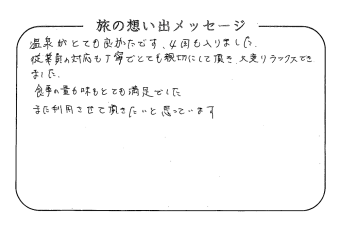 旅の想い出メッセージ
温泉がとても良かったです、4回も入りました.
従業員の対応も丁寧でとても親切にして頂き、大変リラックスでき
ました.
食事の量も味もとても満足でした
また利用させて頂きたいと思っています